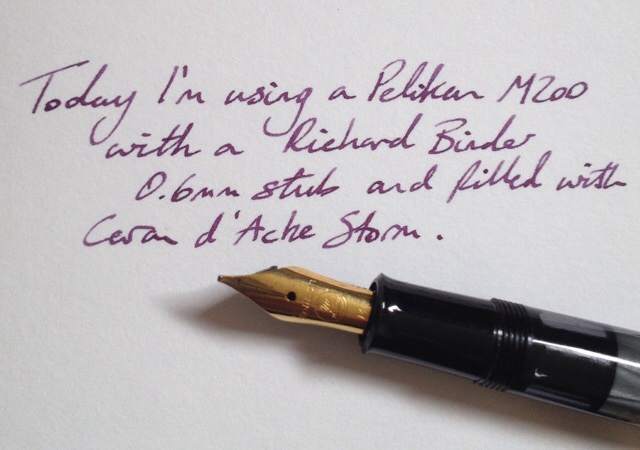 Today I'm using a Pelikan M200
with a Richard Binder
0.6mm stub and filled with
Caran d'Ache Storm.